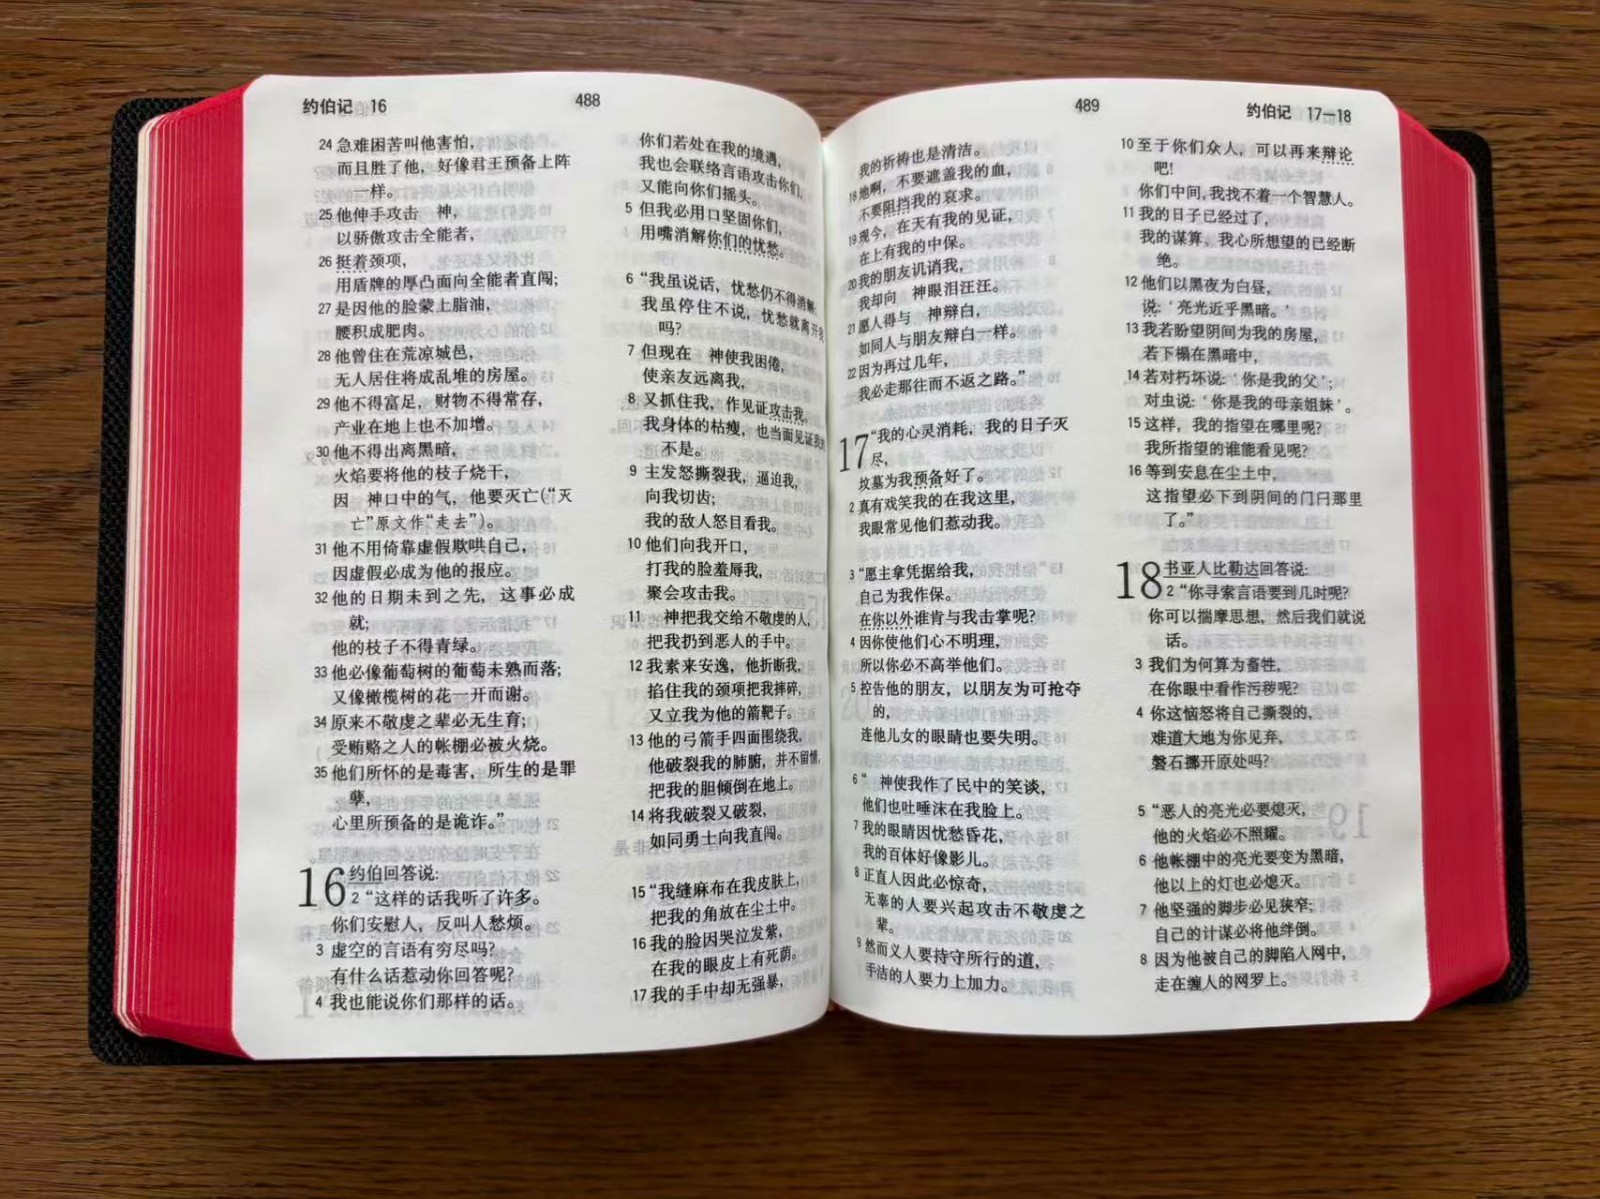 约伯记 16
488
24 急难困苦叫他害怕，
而且胜了他，好像君王预备上阵
一样。
25 他伸手攻击　神，
以骄傲攻击全能者，
26 挺着颈项，
用盾牌的厚凸面向全能者直闯；
27 是因他的脸蒙上脂油，
腰积成肥肉。
28 他曾住在荒凉城邑，
无人居住将成乱堆的房屋。
29 他不得富足，财物不得常存，
产业在地上也不加增。
30 他不得出离黑暗，
火焰要将他的枝子烧干，
因　神口中的气，他要灭亡(“灭
亡”原文作“走去”)。
31 他不用倚靠虚假欺哄自己，
因虚假必成为他的报应。
32 他的日期未到之先，这事必成
就；
他的枝子不得青绿。
33 他必像葡萄树的葡萄未熟而落；
又像橄榄树的花一开而谢。
34 原来不敬虔之辈必无生育；
受贿赂之人的帐棚必被火烧。
35 他们所怀的是毒害，所生的是罪
孽，
心里所预备的是诡诈。”
16 约伯回答说：
2 “这样的话我听了许多。
你们安慰人，反叫人愁烦。
3 虚空的言语有穷尽吗？
有什么话惹动你回答呢？
4 我也能说你们那样的话。
你们若处在我的境遇，
我也会联络言语攻击你们，
又能向你们摇头。
5 但我必用口坚固你们，
用嘴消解你们的忧愁。
6 “我虽说话，忧愁仍不得消解；
我虽停住不说，忧愁就离开我
吗？
7 但现在　神使我困倦，
使亲友远离我，
8 又抓住我，作见证攻击我。
我身体的枯瘦，也当面见证我的
不是。
9 主发怒撕裂我，逼迫我，
向我切齿；
我的敌人怒目看我。
10 他们向我开口，
打我的脸羞辱我，
聚会攻击我。
11 　神把我交给不敬虔的人，
把我扔到恶人的手中。
12 我素来安逸，他折断我，
掐住我的颈项把我摔碎，
又立我为他的箭靶子。
13 他的弓箭手四面围绕我，
他破裂我的肺腑，并不留情，
把我的胆倾倒在地上。
14 将我破裂又破裂，
如同勇士向我直闯。
15 “我缝麻布在我皮肤上，
把我的角放在尘土中。
16 我的脸因哭泣发紫，
在我的眼皮上有死荫。
17 我的手中却无强暴，
489
约伯记 17—18
我的祈祷也是清洁。
18 地啊，不要遮盖我的血，
不要阻挡我的哀求。
19 现今，在天有我的见证，
在上有我的中保。
20 我的朋友讥诮我，
我却向　神眼泪汪汪。
21 愿人得与　神辩白，
如同人与朋友辩白一样。
22 因为再过几年，
我必走那往而不返之路。”
17 “我的心灵消耗，我的日子灭
尽，
坟墓为我预备好了。
2 真有戏笑我的在我这里，
我眼常见他们惹动我。
3 “愿主拿凭据给我，
自己为我作保。
在你以外谁肯与我击掌呢？
4 因你使他们心不明理，
所以你必不高举他们。
5 控告他的朋友，以朋友为可抢夺
的，
连他儿女的眼睛也要失明。
6 “　神使我作了民中的笑谈，
他们也吐唾沫在我脸上。
7 我的眼睛因忧愁昏花，
我的百体好像影儿。
8 正直人因此必惊奇，
无辜的人要兴起攻击不敬虔之
辈。
9 然而义人要持守所行的道，
手洁的人要力上加力。
10 至于你们众人，可以再来辩论
吧！
你们中间，我找不着一个智慧人。
11 我的日子已经过了，
我的谋算、我心所想望的已经断
绝。
12 他们以黑夜为白昼，
说：‘亮光近乎黑暗。’
13 我若盼望阴间为我的房屋，
若下榻在黑暗中，
14 若对朽坏说：‘你是我的父’；
对虫说：‘你是我的母亲姐妹’。
15 这样，我的指望在哪里呢？
我所指望的谁能看见呢？
16 等到安息在尘土中，
这指望必下到阴间的门闩那里
了。”
18 书亚人比勒达回答说：
2 “你寻索言语要到几时呢？
你可以揣摩思想，然后我们就说
话。
3 我们为何算为畜牲，
在你眼中看作污秽呢？
4 你这恼怒将自己撕裂的，
难道大地为你见弃，
磐石挪开原处吗？
5 “恶人的亮光必要熄灭，
他的火焰必不照耀。
6 他帐棚中的亮光要变为黑暗，
他以上的灯也必熄灭。
7 他坚强的脚步必见狭窄；
自己的计谋必将他绊倒。
8 因为他被自己的脚陷入网中，
走在缠人的网罗上。